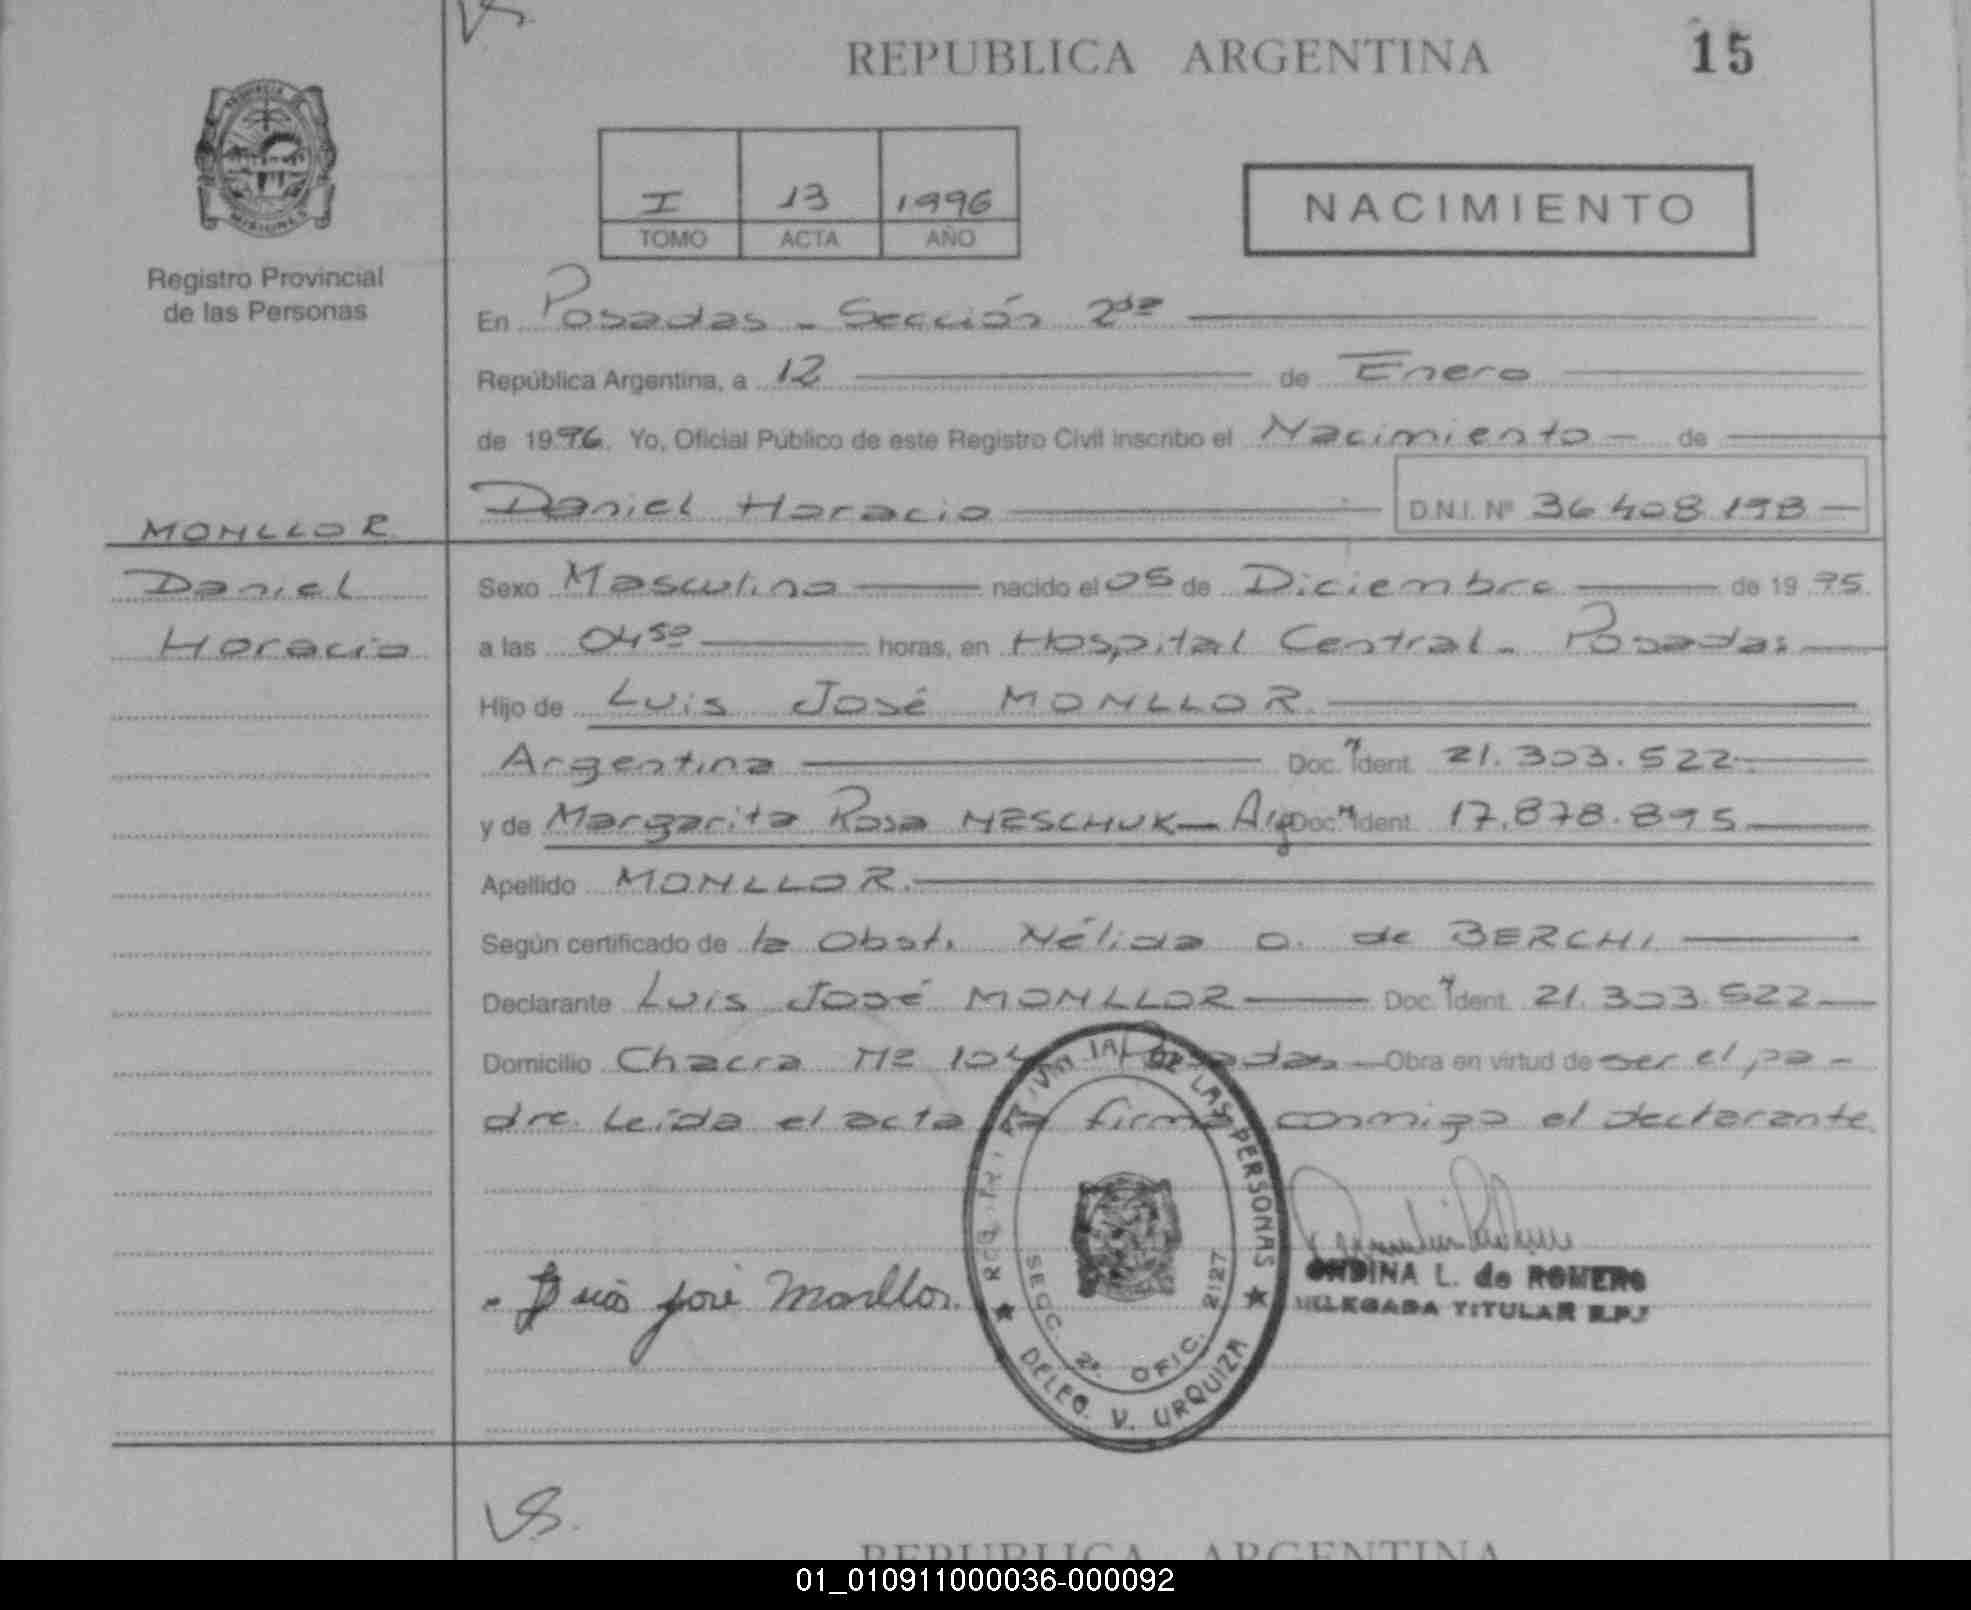 REPUBLICA ARGENTINA
15
PROVINCIA
MISIONES
Registro Provincial
de las Personas
I 13 1996
TOMO ACTA AÑO
NACIMIENTO
En Posadas - Sección 2da
República Argentina, a 12 de Enero
de 1996. Yo, Oficial Público de este Registro Civil inscribo el Nacimiento de
MONLLOR
Daniel
Horacio
Daniel Horacio D.N.I. Nº 36.408.198
Sexo Masculino nacido el 05 de Diciembre de 1995.
a las 04 50 horas, en Hospital Central - Posadas
Hijo de Luis José MONLLOR
Argentina Doc. Ident. 21.303.522
y de Margarita Rosa NESCHUK - Arg Doc. Ident. 17.878.895
Apellido MONLLOR.
Según certificado de la Obst. Nélida O. de BERCHI
Declarante Luis José MONLLOR Doc. Ident. 21.303.522
Domicilio Chacra Nº 104 Posadas Obra en virtud de ser el pa-
dre. Leída el acta la firma conmigo el declarante.
DE LAS PERSONAS
SECC. 2ª. OFIC. 2127
DELEG. V. URQUIZA
Luis José Monllor.
ONDINA L. de ROMERO
DELEGADA TITULAR R.P.
REPUBLICA ARGENTINA
01_010911000036-000092